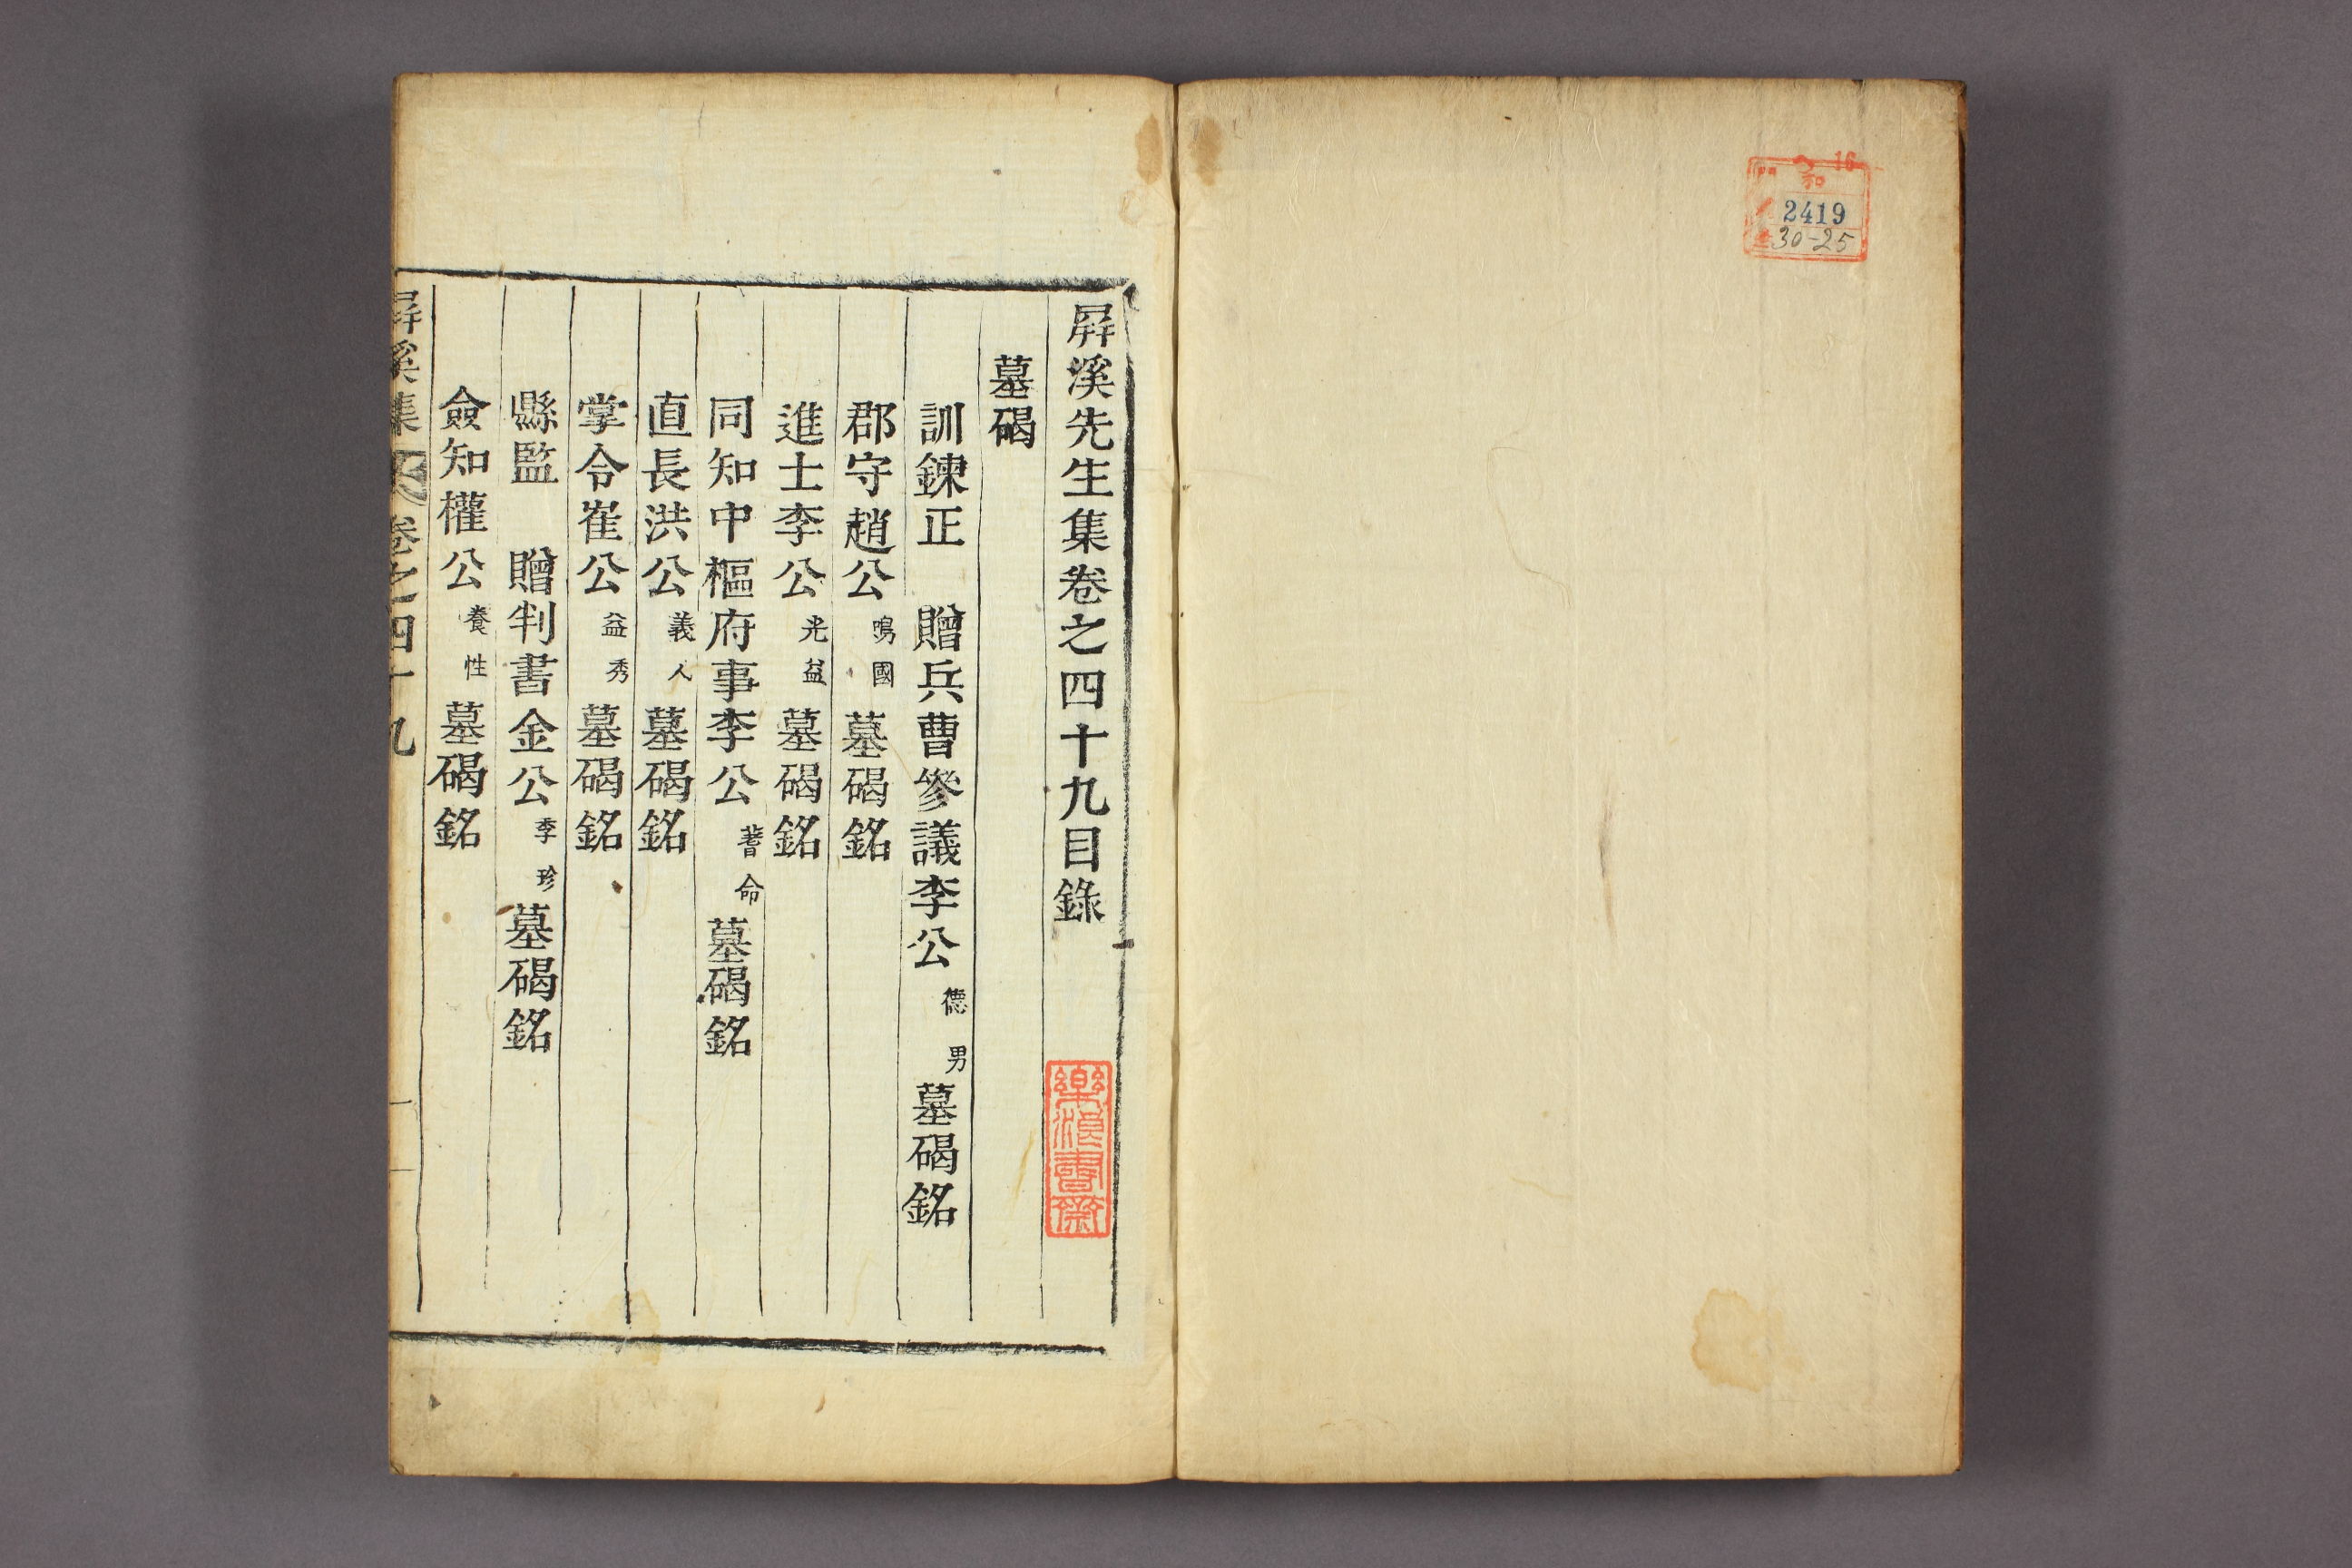 門 へ 16
和
2419
30-25
屛溪先生集卷之四十九目錄
墓碣
訓鍊正 贈兵曹參議李公德男墓碣銘
郡守趙公鳴國墓碣銘
進士李公光益墓碣銘
同知中樞府事李公蓍命墓碣銘
直長洪公義人墓碣銘
掌令崔公益秀墓碣銘
縣監 贈判書金公季珍墓碣銘
僉知權公養性墓碣銘
屛溪集 卷之四十九 一
樂浪書徵